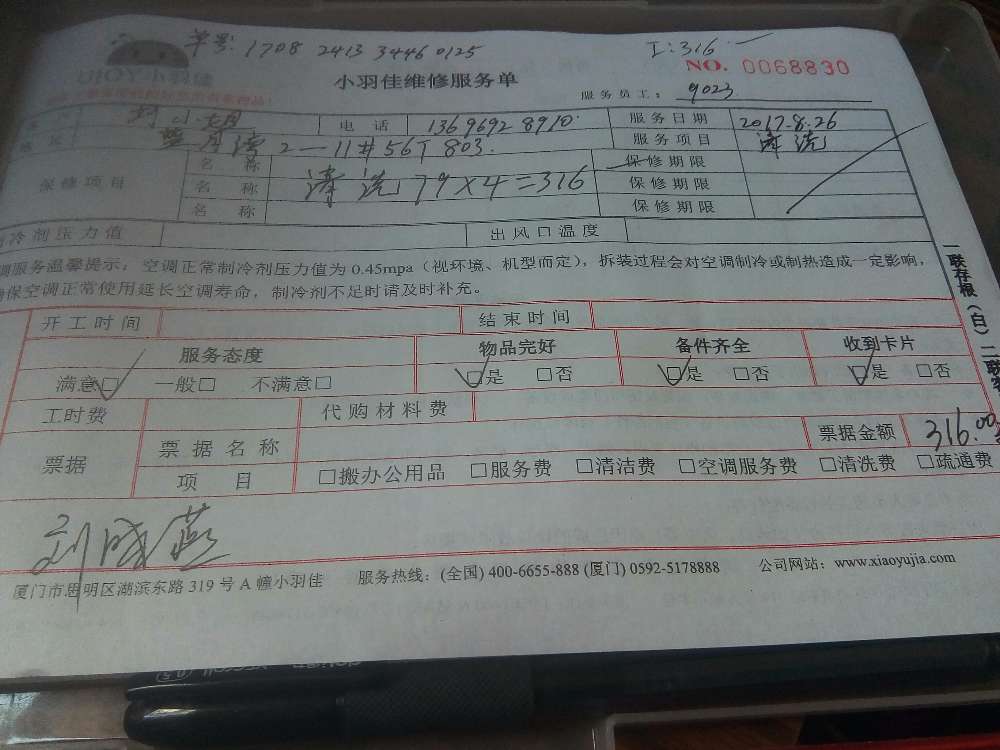 单号: 1708 2413 3446 0125
I: 316.—
NO. 0068830
小羽佳维修服务单
服务员工: 9023
刘小姐 电话 13696928910 服务日期 2017.8.26
2—11#56T 803. 服务项目 清洗
保修项目 名称 保修期限
名称 清洗79×4=316 保修期限
名称 保修期限
冷剂压力值 出风口温度
服务温馨提示：空调正常制冷剂压力值为0.45mpa（视环境、机型而定），拆装过程会对空调制冷或制热造成一定影响，
保空调正常使用延长空调寿命，制冷剂不足时请及时补充。
一联存根（白）二联客
开工时间 结束时间
服务态度 物品完好 备件齐全 收到卡片
满意☑ 一般□ 不满意□ ☑是 □否 ☑是 □否 ☑是 □否
工时费 代购材料费
票据 票据名称 票据金额 316.00
项目 □搬办公用品 □服务费 □清洁费 □空调服务费 □清洗费 □疏通费
厦门市思明区湖滨东路319号A幢小羽佳 服务热线：(全国) 400-6655-888 (厦门) 0592-5178888 公司网站：www.xiaoyujia.com